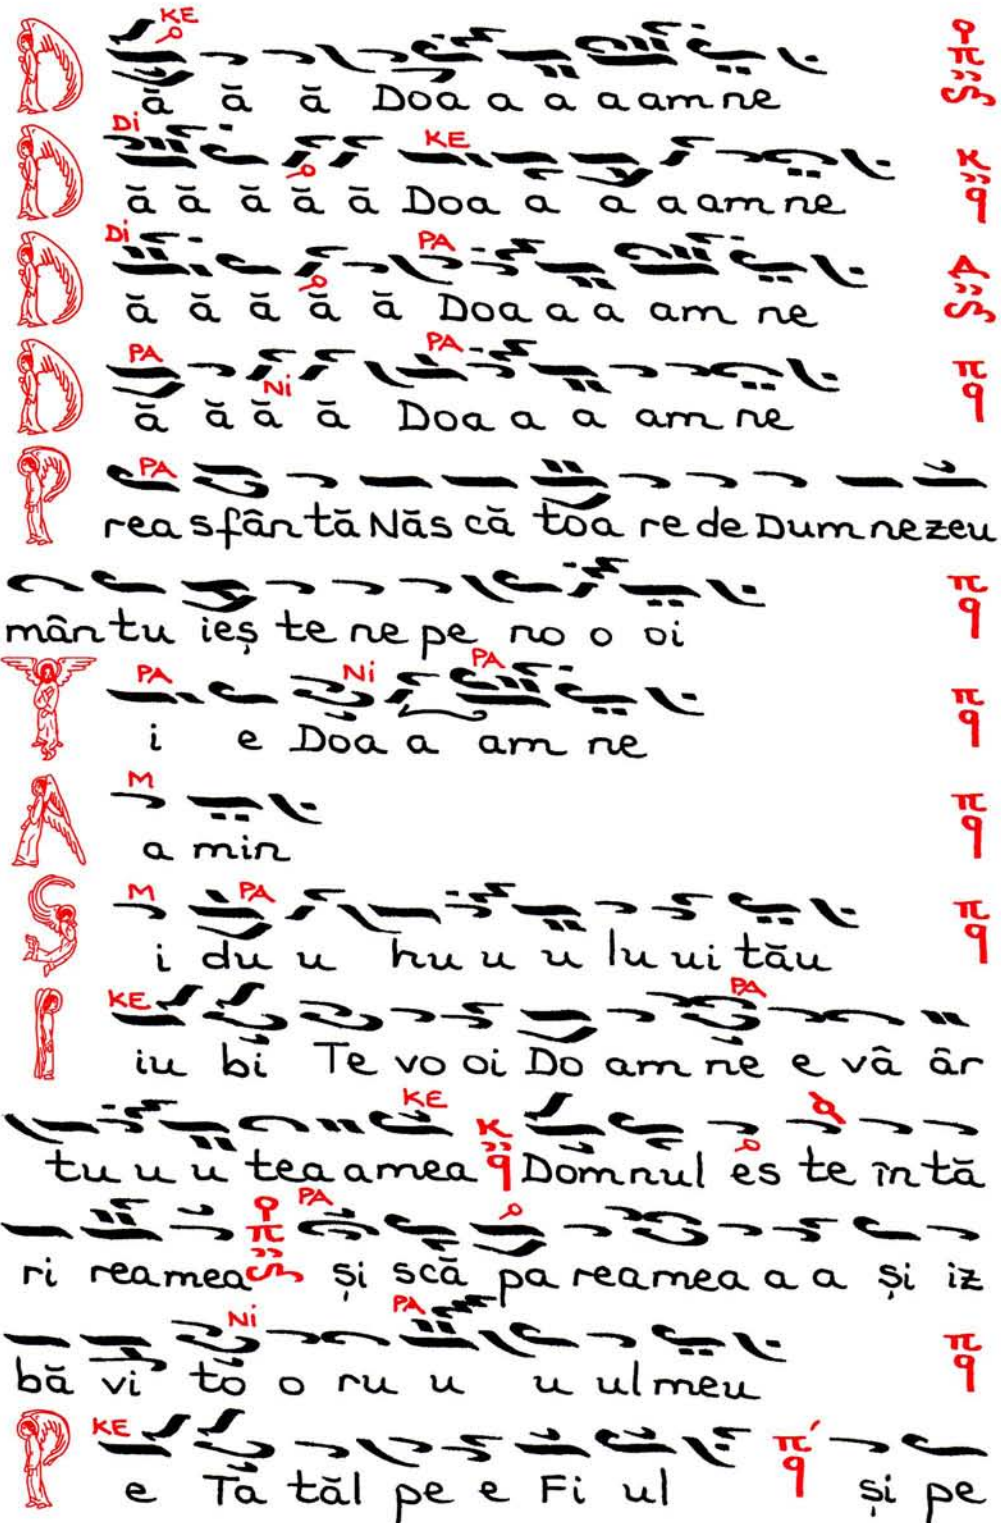 KE
D ă ă ă Doa a a a am ne
Di KE
D ă ă ă ă ă Doa a a a am ne
Di PA
D ă ă ă ă ă Doa a a am ne
PA Ni PA
D ă ă ă ă Doa a a am ne
PA
P rea sfân tă Năs că toa re de Dum ne zeu
mân tu ieș te ne pe no o oi
PA Ni PA
Ț i e Doa a am ne
M
A a min
M PA
Ș i du u hu u u lu ui tău
KE PA
I iu bi Te vo oi Do am ne e vâ âr
KE
tu u u tea a mea Domnul es te în tă
PA
ri rea mea și scă pa rea mea a a și iz
Ni PA
bă vi to o ru u u ul meu
KE
P e Ta tăl pe e Fi ul și pe